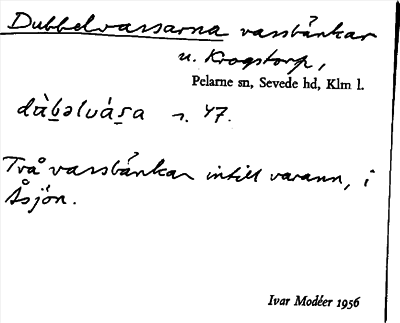 Dubbelvassarna vassbänkar
u. Krogstorp,
Pelarne sn, Sevede hd, Klm l.
s. 47.
Två vassbänkar intill varann, i
Åsjön.
Ivar Modéer 1956